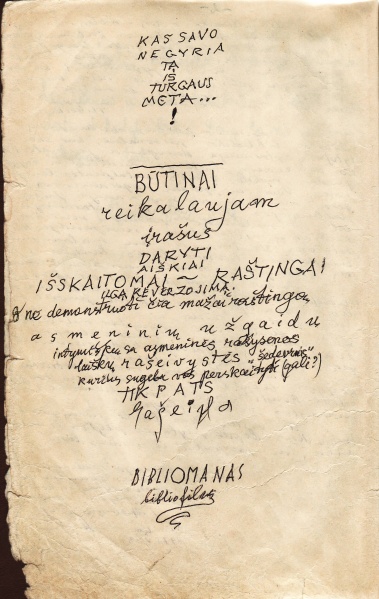 KAS SAVO
NEGYRIA
TĄ
IŠ
TURGAUS
META...
!
BŪTINAI
reikalaujam
įrašus
DARYTI
AIŠKIAI
IŠSKAITOMAI ~ RAŠTINGAI
O ne demonstruoti čia mažaraštingo
asmeninių užgaidų
asmeninės rašysenos
laiškų rašeivystės "šedevrus"
kuriuos sugeba vos perskaityti (gali?)
TIK PATS
rašeiva
BIBLIOMANAS
bibliofilas